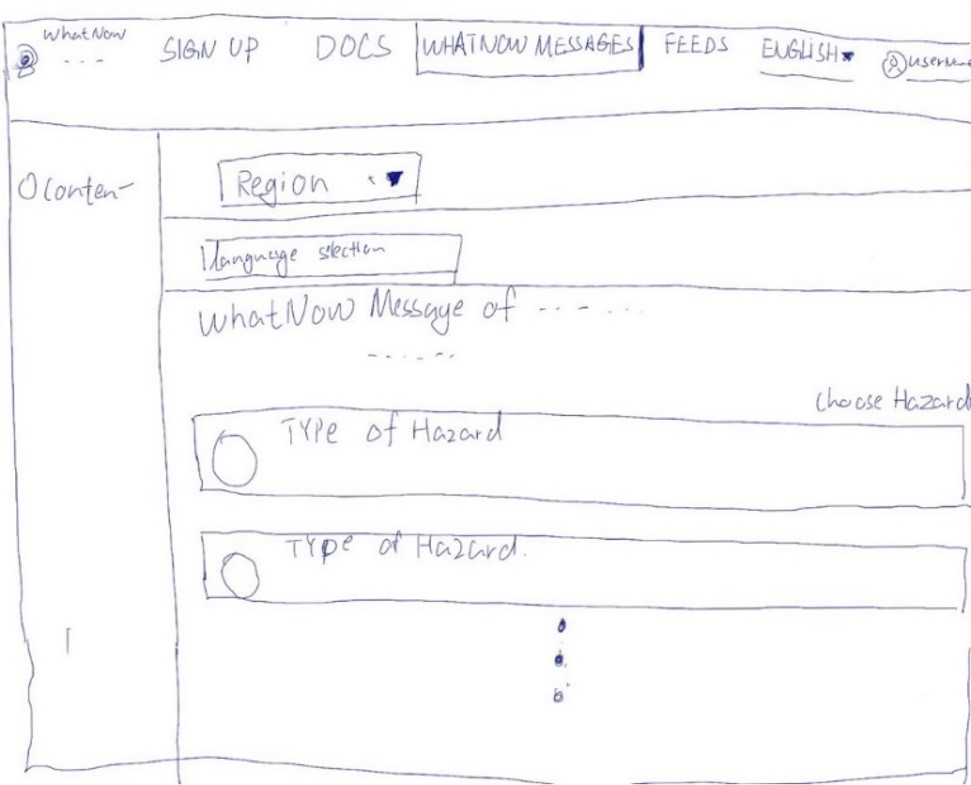 WhatNow
SIGN UP DOCS WHATNOW MESSAGES FEEDS ENGLISH
Conten
Region
language selection
WhatNow Message of
Choose Hazard
TYPE of Hazard
TYPE of Hazard.